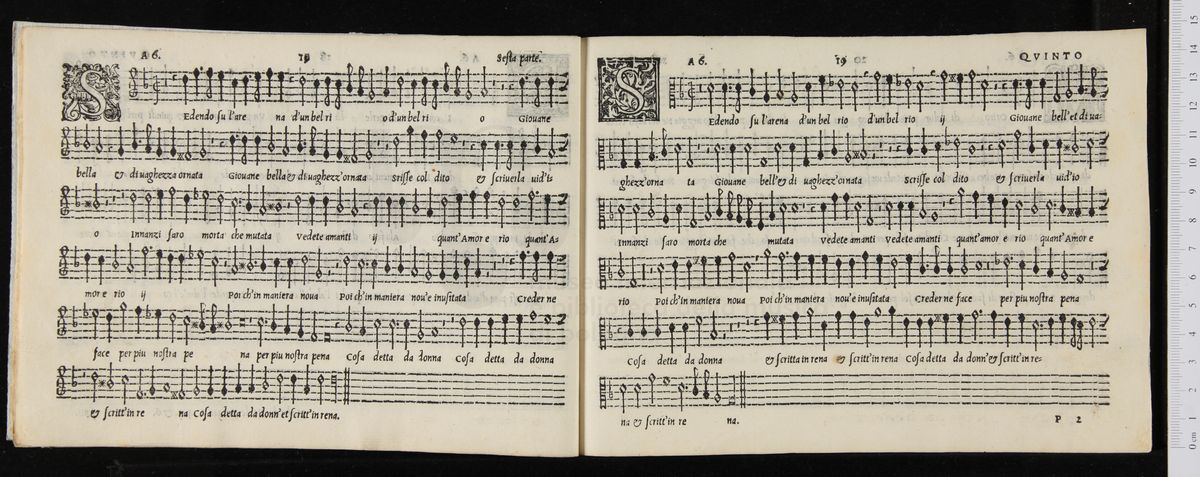 A 6. 19 Sesta parte.
S Edendo su l'are na d'un bel ri o d'un bel ri o Giouane
bella & di uaghezza ornata Giouane bella & di uaghezz'ornata Scrisse col dito & scriuerla uid'is
o Innanzi saro morta che mutata Vedete amanti ij quant'Amor e rio quant'A=
mor e rio ij Poi ch'in maniera noua Poi ch'in maniera nou'e inusitata Creder ne
face per piu nostra pe na per piu nostra pena Cosa detta da donna Cosa detta da donna
& scritt'in re na Cosa detta da donn'et scritt'in rena.
A 6. 19 QVINTO
S Edendo su l'arena d'un bel rio d'un bel rio ij Giouane bell'et di ua=
ghezz'orna ta Giouane bell'& di uaghezz'ornata Scrisse col dito & scriuerla uid'io
Innanzi saro morta che mutata Vedete amanti Vedete amanti quant'amor e rio quant'Amor e
rio Poi ch'in maniera noua Poi ch'in maniera nou'e inusitata Creder ne face per piu nostra pena
Cosa detta da donna & scritta in rena & scritt'in rena Cosa detta da donn'& scritt'in re=
na & scritt'in re na.
P 2
0 cm 1 2 3 4 5 6 7 8 9 10 11 12 13 14 15